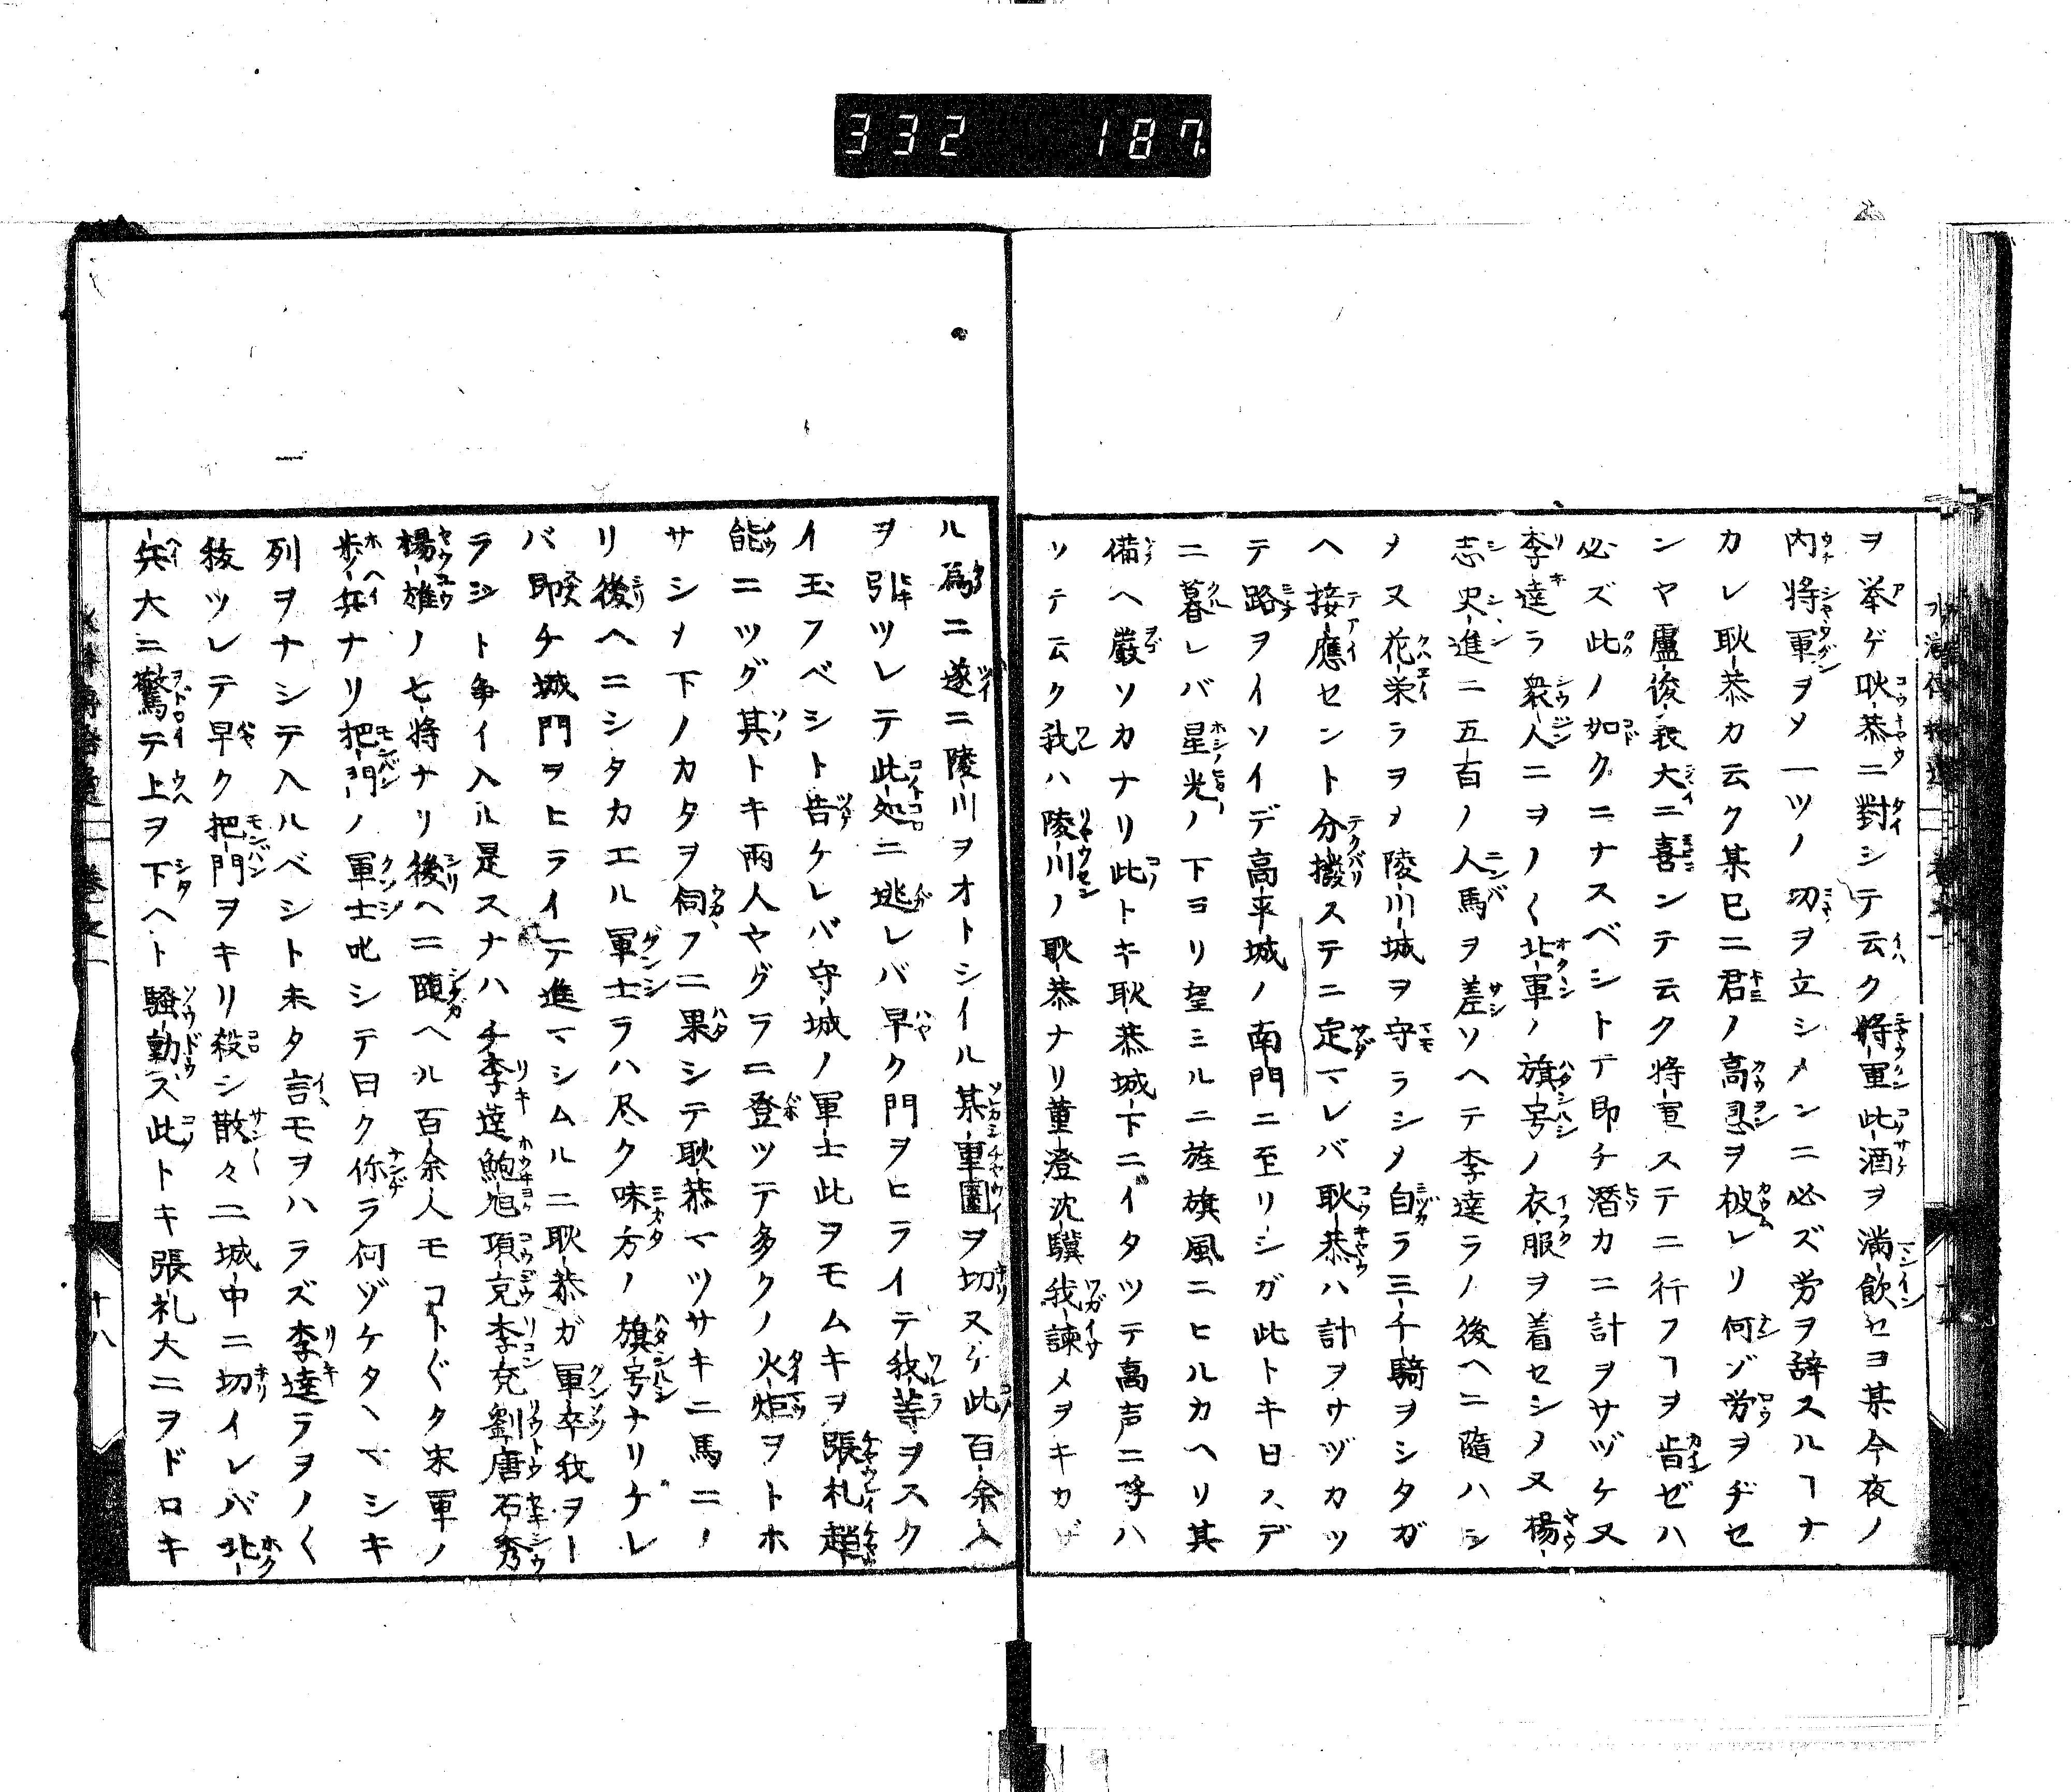 332 187
ヲ挙ゲ耿恭ニ對シテ云ク將軍此酒ヲ満飲セヨ某今夜ノ
内將軍ヲメ一ツノ切ヲ立シメンニ必ズ労ヲ辞スルヿナ
カレ耿恭カ云ク某已ニ君ノ高恩ヲ被レリ何ゾ労ヲヂセ
ンヤ盧俊義大ニ喜ンテ云ク將軍ステニ行フヿヲ肯ゼハ
必ズ此ノ如クニナスベシトテ即チ潛カニ計ヲサヅケ又
李逵ラ衆人ニヲノ〱北軍ノ旗号ノ衣服ヲ着セシメ又楊
志史進ニ五百ノ人馬ヲ差ソヘテ李逵ラノ後ヘニ隨ハシ
メ又花栄ラヲメ陵川城ヲ守ラシメ自ラ三千騎ヲシタガ
ヘ接應セント分撥ステニ定マレバ耿恭ハ計ヲサヅカツ
テ路ヲイソイデ高平城ノ南門ニ至リシガ此トキ日スデ
ニ暮レバ星光ノ下ヨリ望ミルニ旌旗風ニヒルカヘリ其
備ヘ嚴ソカナリ此トキ耿恭城下ニイタツテ高声ニ呼ハ
ソテ云ク我ハ陵川ノ耿恭ナリ董澄沈驥我諫メヲキカザ
ル為ニ遂ニ陵川ヲオトシイル某重圍ヲ切ヌケ此百余人
ヲ引ツレテ此処ニ逃レバ早ク門ヲヒライテ我等ヲスク
イ玉フベシト告ケレバ守城ノ軍士此ヲモムキヲ張礼趙
能ニツグ其トキ兩人ヤグラニ登ツテ多クノ火炬ヲトホ
サシメ下ノカタヲ伺フニ果シテ耿恭マツサキニ馬ニノ
リ後ヘニシタカエル軍士ラハ尽ク味方ノ旗号ナリケレ
バ即チ城門ヲヒライテ進マシムルニ耿恭ガ軍卒我ヲー
ラジト争イ入ル是スナハチ李逵鮑旭項充李兗劉唐石秀
楊雄ノ七將ナリ後ヘニ隨ヘル百余人モコト〲ク宋軍ノ
歩兵ナリ把門ノ軍士叱シテ曰ク你ラ何ゾケタヽマシキ
列ヲナシテ入ルベシト未タ言モヲハラズ李逵ラヲノ〱
抜ツレテ早ク把門ヲキリ殺シ散々ニ城中ニ切イレバ北
兵大ニ驚テ上ヲ下ヘト騒動ス此トキ張礼大ニヲドロキ
十八